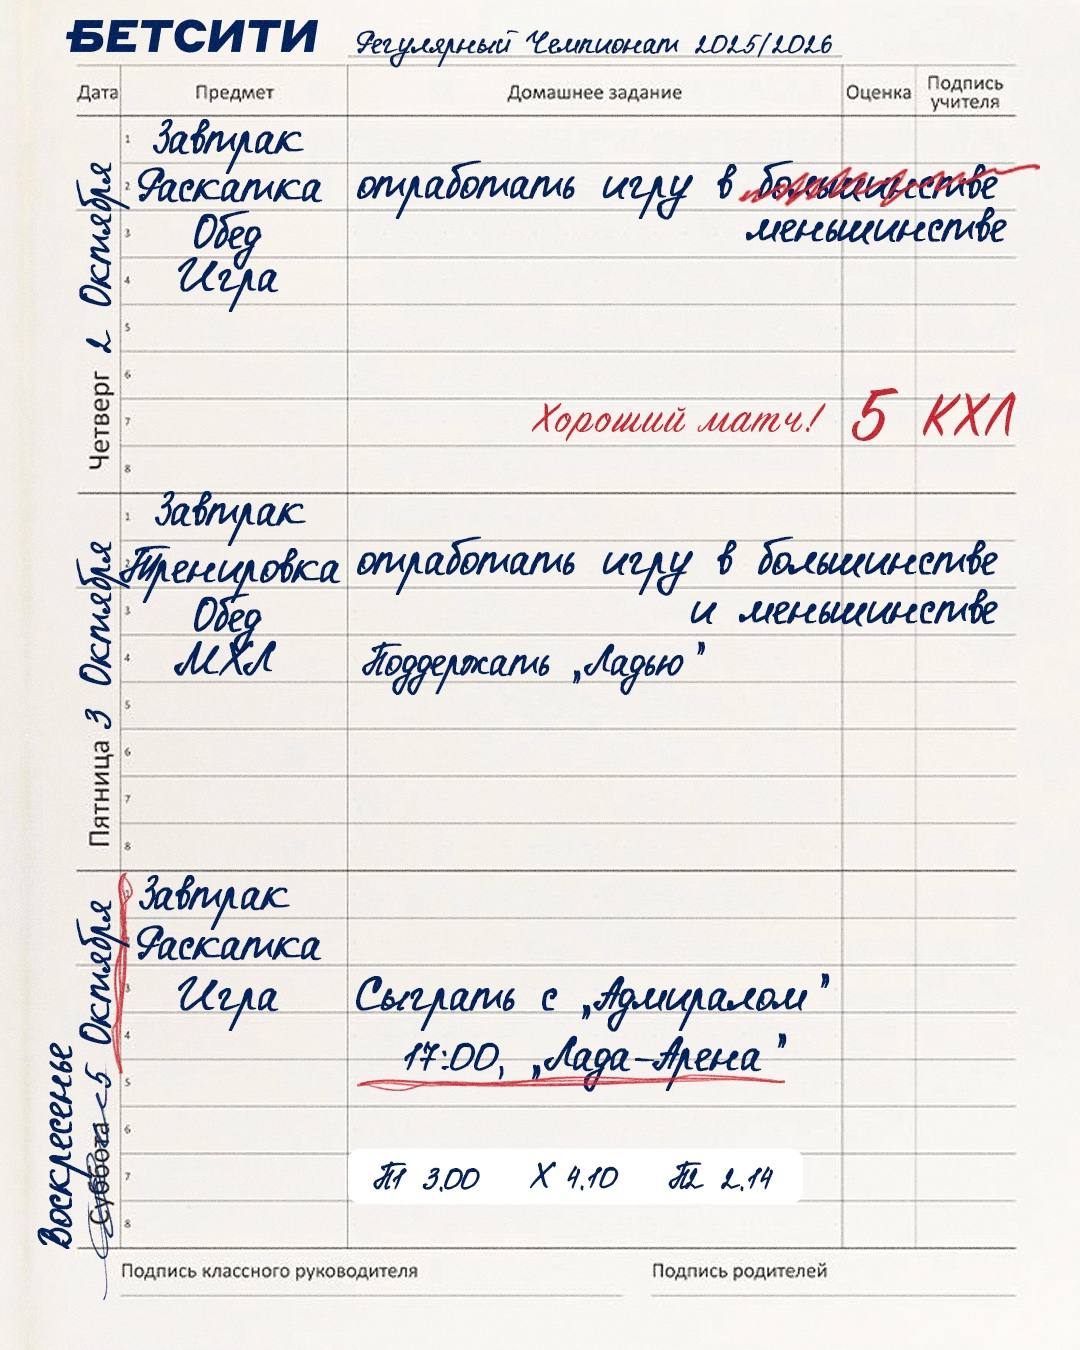 БЕТСИТИ Регулярный Чемпионат 2025/2026
Дата Предмет Домашнее задание Оценка Подпись учителя
Четверг 2 Октября
1 Завтрак
2 Раскатка отработать игру в большинстве
3 Обед меньшинстве
4 Игра
5
6
7 Хороший матч! 5 КХЛ
8
Пятница 3 Октября
1 Завтрак
2 Тренировка отработать игру в большинстве
3 Обед и меньшинстве
4 МХЛ Поддержать „Ладью”
5
6
7
8
Воскресенье Суббота 5 Октября
1 Завтрак
2 Раскатка
3 Игра Сыграть с „Адмиралом”
4 17:00, „Лада-Арена”
5
6
7 П1 3.00 X 4.10 П2 2.14
8
Подпись классного руководителя Подпись родителей